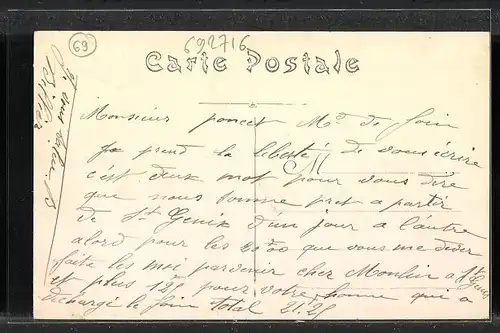 69
692716
Carte Postale
Monsieur poncet Md de foin
Je prend la liberté de vous écrire
c'est deux mot pour vous dire
que nous somme pret a partir
de St Genix d'un jour a l'autre
alord pour les que vous me devez
faite les moi parvenir cher Moulin a St Genix
et plus 12f pour votre homme qui a
déchargé le foin total